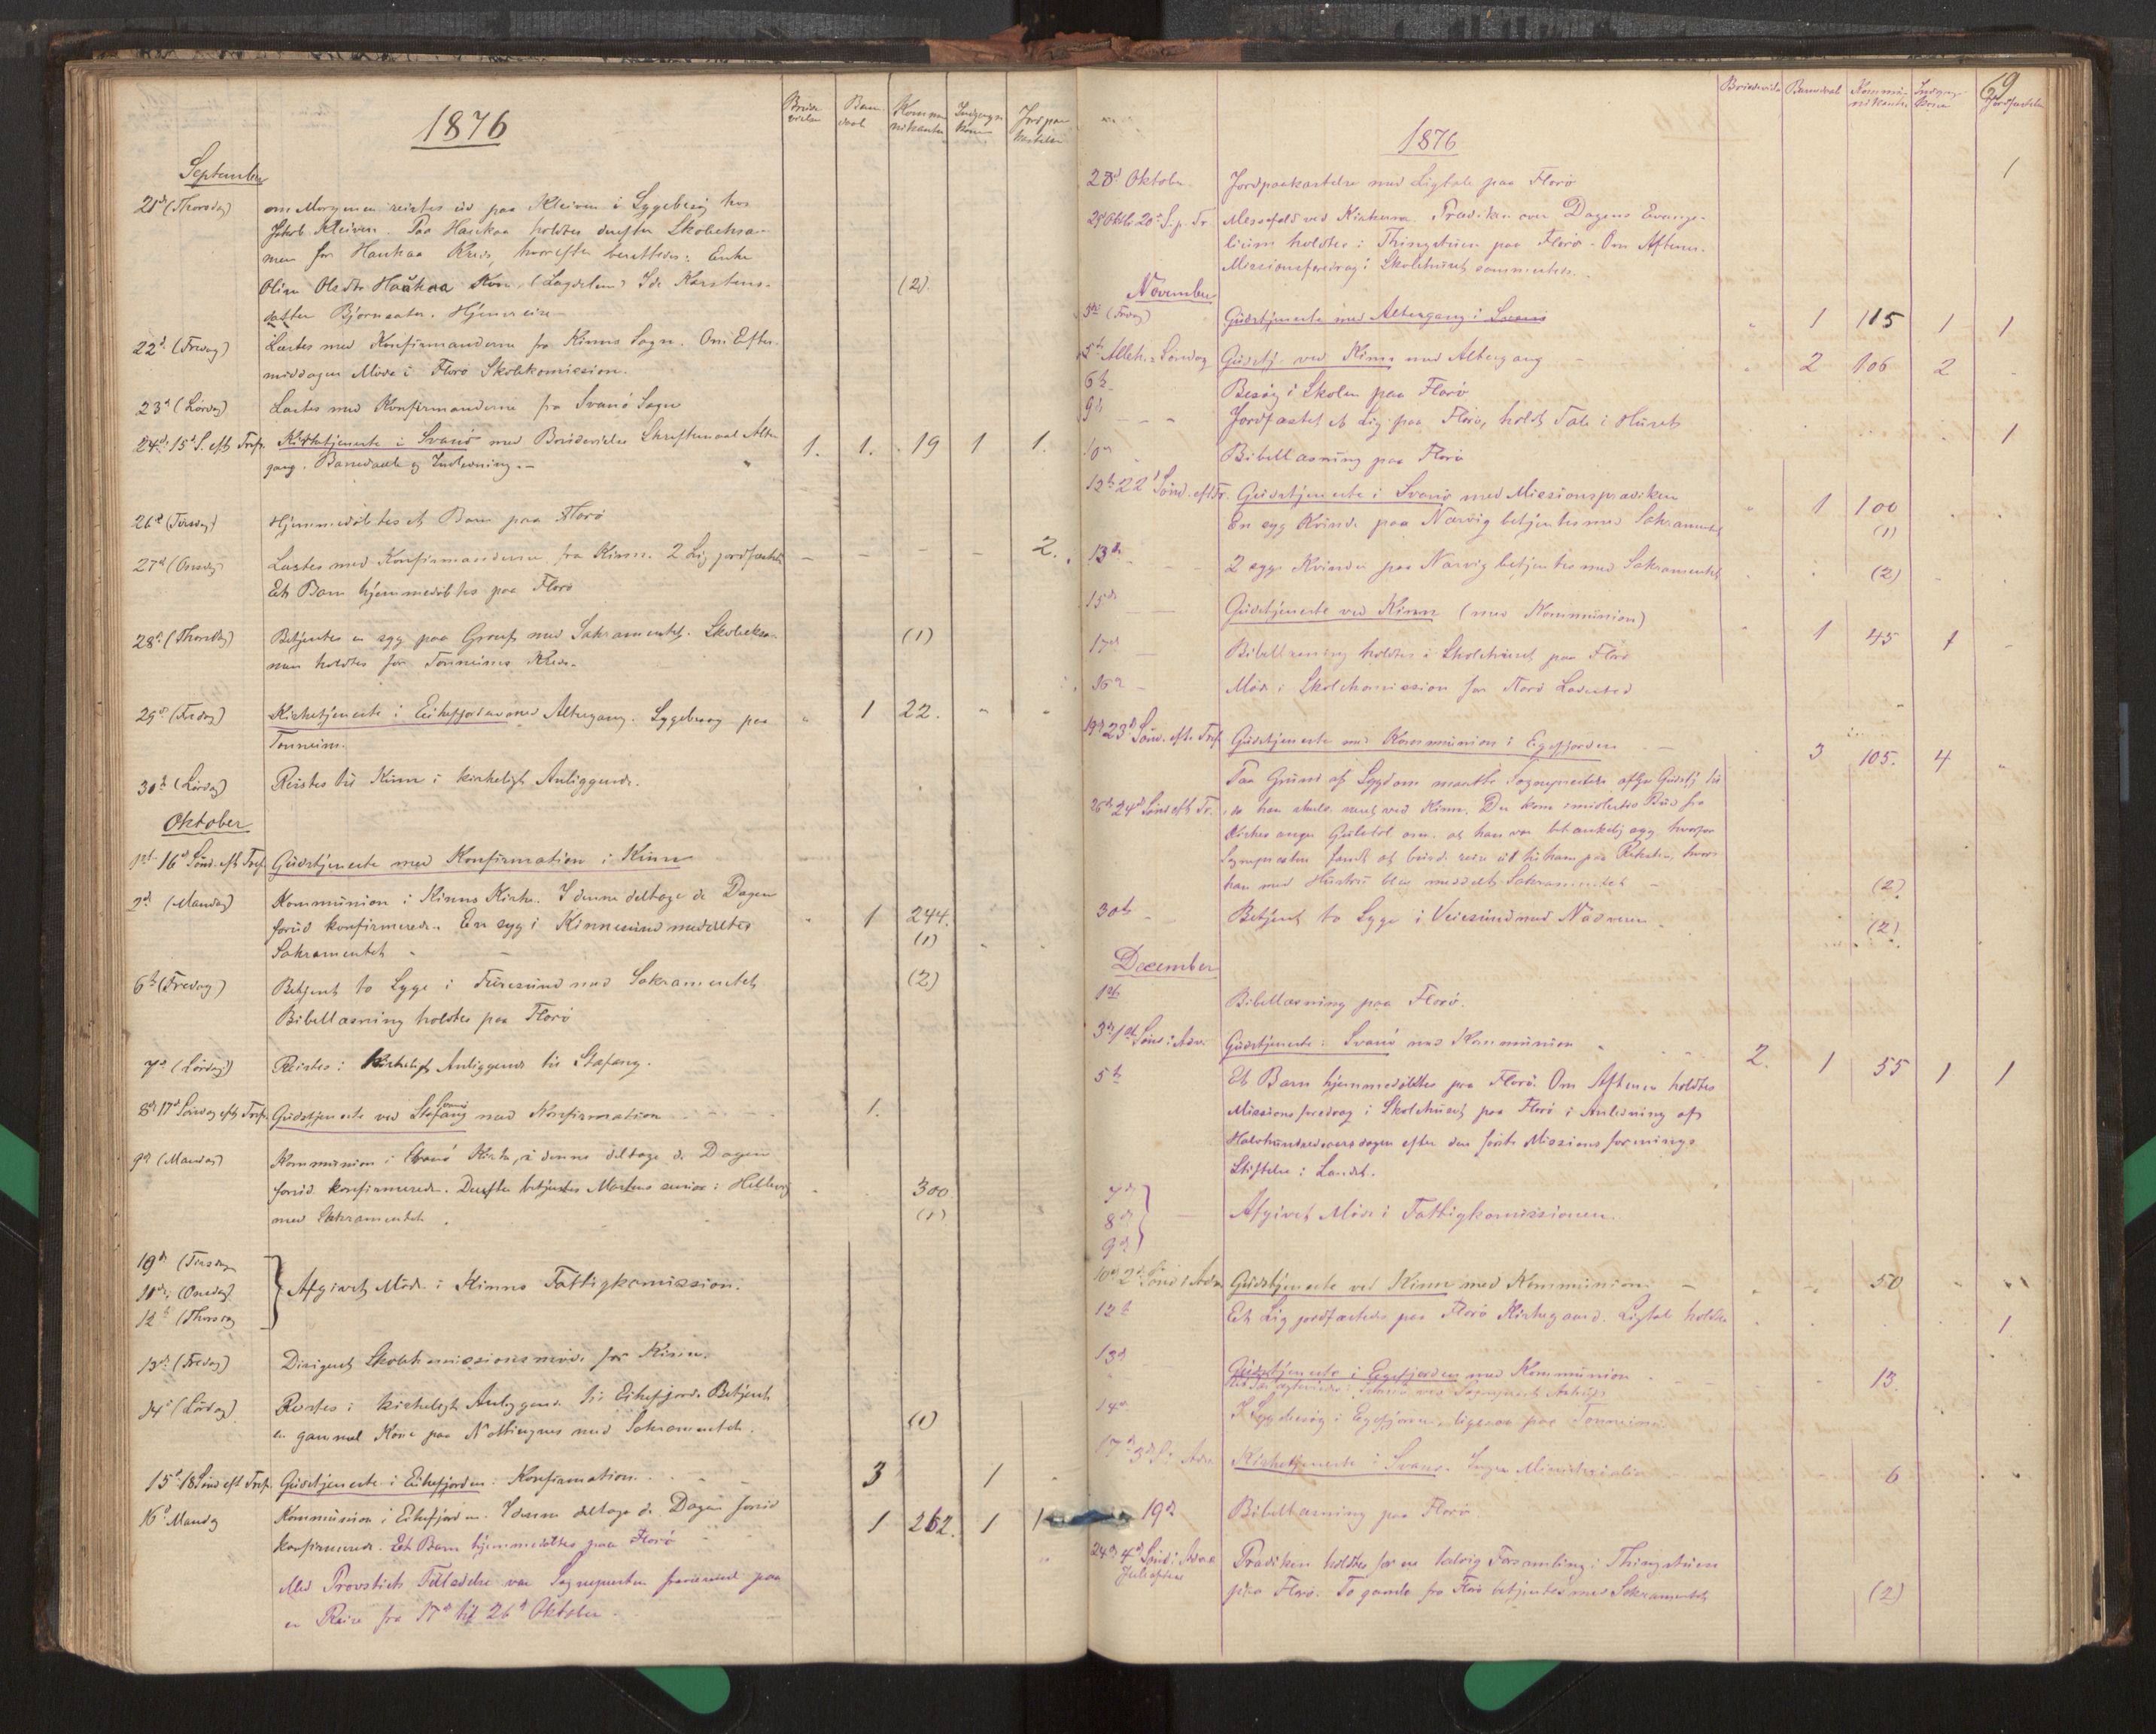 1876
Brude
vielse
Barn
daab
Kommu
nikanter
Indgangs
kone
Jordpaa
kastelse
September
21d (Thorsdag) om Morgenen reistes ud paa Kleiven i Sygebesøg hos
Jakob Kleiven. Paa Haukaa holdtes derefter Skoleexa-
men for Haukaa Kreds, hvorefter berettedes: Enke
Oline Olsdtr Haukaa Kone (Lagdelen) Ida Karstens- (2)
datter Bjørnsæter. Hjemreise
22d (Fredag) Læstes med Konfirmanderne fra Kinns Sogn. Om Efter-
middagen Møde i Florø Skolekomission.
23d (Lørdag) Læstes med Konfirmanderne fra Svanø Sogn
24d 15d S. eft Tref. Kirketjeneste i Svanø med Brudevielse Skriftemaal Alter 1. 1. 19 1 1.
gang. Barnedaab og Indledning. -
26d (Tirsdag) Hjemmedøbtes et Barn paa Florø
27d (Onsdag) Læstes med Konfirmanderne fra Kinn. 2 Lig jordfæstet - - - - 2.
Et Barn hjemmedøbtes paa Florø
28d (Thorsdag) Betjentes en syg paa med Sakramentet. Skoleeksa- (1)
men holdtes for Tonneims Kreds.
29d (Fredag) Kirketjeneste i Eikefjorden med Altergang. Sygebesøg paa " 1 22. " "
Tonneim.
30te (Lørdag) Reistes til Kinn i kirkeligt Anliggende.
Oktober
1st 16d Sønd. eft Tref. Gudstjeneste med Konfirmation i Kinn
2d (Mandag) Kommunion i Kinns Kirke. I denne deltoge de Dagen
forud konfirmerede. En syg i Kinnesund meddeltes " 1 244.
Sakramentet - (1)
6te (Fredag) Betjent to Syge i Furesund med Sakramentet (2)
Bibellæsning holdtes paa Florø
7d (Lørdag) Reistes i kirkeligt Anliggende til Stafang.
8d 17d Søndag eft Tref. Gudstjeneste ved Stafang Svanø med Konfirmation 1.
9d (Mandag) Kommunion i Svanø Kirke, i denne deltoge de Dagen
forud konfirmerede. Derefter betjentes Martens senior i Helleviig 300
med Sakramentet. (1)
10d (Tirsdag
11d (Onsdag)
12te (Thorsdag
Afgivet Møde i Kinns Fattigkomission.
13d (Fredag) Dirigent Skolekomissionsmøde for Kinn.
14d (Lørdag) Reistes i kirkeligt Anliggende til Eikefjord. Betjent
en gammel Kone paa Nøttingnes med Sakramentet. (1)
15d 18 Sønd eft Tref. Gudstjeneste i Eikefjorden: Konfirmation. 3 1
16d Mandag Kommunion i Eikefjorden. I denne deltoge de Dagen forud 1 262. 1 1
konfirmerede. Et Barn hjemmedøbtes paa Florø
Med Provstiets Tilladelse var Sognepresten fraværende paa
en Reise fra 17d til 26d Oktober.
Brudevielse Barnedaab Kommu-
nikanter Indgangs-
kone Jordfæstelse
69
1876
28d Oktober. Jordpaakastelse med Ligtale paa Florø 1
29d Oktb. 20d S. p. Tr. Messefald ved Kirkerne. Prædiken over Dagens Evange-
lium holdtes i Thingstuen paa Florø. Om Aftenen
Missionsforedrag i Skolehuset sammesteds.
November
3die (Fredag) Gudstjeneste med Altergang i Svanø " 1 115 1 1
5te Alleh. Søndag Gudstj. ved Kinn med Altergang - " 2 106 2 -
6te Besøg i Skolen paa Florø
9de Jordfæstet et Lig paa Florø, holdt Tale i Huset 1
10de Bibellæsning paa Florø
12te 22d Sønd. eft Tr. Gudstjeneste i Svanø med Missionsprædiken " 1 100
En syg Kvinde paa Nærvig betjentes med Sakramentet (1)
13de 2 syge Kvinder paa Nærvig betjentes med Sakramentet (2)
15de Gudstjeneste ved Kinn (med Kommunion) " 1 45 1 -
17de Bibellæsning holdtes i Skolehuset paa Florø
16d Møde i Skolekomission for Florø Ladested
19de 23d Sønd. efter Tref. Gudstjeneste med Kommunion i Egefjorden 3 105. 4 "
26de 24d Sønd eft Tr. Paa Grund af Sygdom maatte Sognepresten aflyse Gudstj.
da han skulde været ved Kinn. Der kom imidlertid Bud fra
Kirkesanger om, at han var betænkelig syg, hvorfor
Sognepresten fandt at burde reise ud til ham paa, hvor
han med Hustru blev meddelt Sakramentet - (2)
30te Betjent to Syge i Veiesund med Nadveren (2)
December
1ste Bibellæsning paa Florø.
3d 1ste Sønd i Adv. Gudstjeneste i Svanø med Kommunion 2. 1 55 1 1
5te Et Barn hjemmedøbtes paa Florø. Om Aftenen holdtes
Missionsforedrag i Skolehuset paa Florø i Anledning af
Halvhundredaarsdagen efter den første Missionsforenings
Stiftelse i Landet.
7de
8de
9de
Afgivet Møde i Fattigkomissionen.
10de 2d Sønd i Adv. Gudstjeneste ved Kinn med Kommunion - 50
12te Et Lig jordfæstedes paa Florø Kirkegaard. Ligtale holdtes 1
13de Gudstjeneste i Egefjorden med Kommunion 13
14de I Sygebesøg i Egefjorden, ligesaa paa Tonneim
17de 3d S. i Adv. Kirketjeneste i Svanø. Ingen Ministerialia 6
19de Bibellæsning paa Florø.
24de 4d Sønd i Advent Prædiken holdtes for en talrig Forsamling i Thingstuen
Juleaften paa Florø. To gamle fra Florø betjentes med Sakramentet (2)